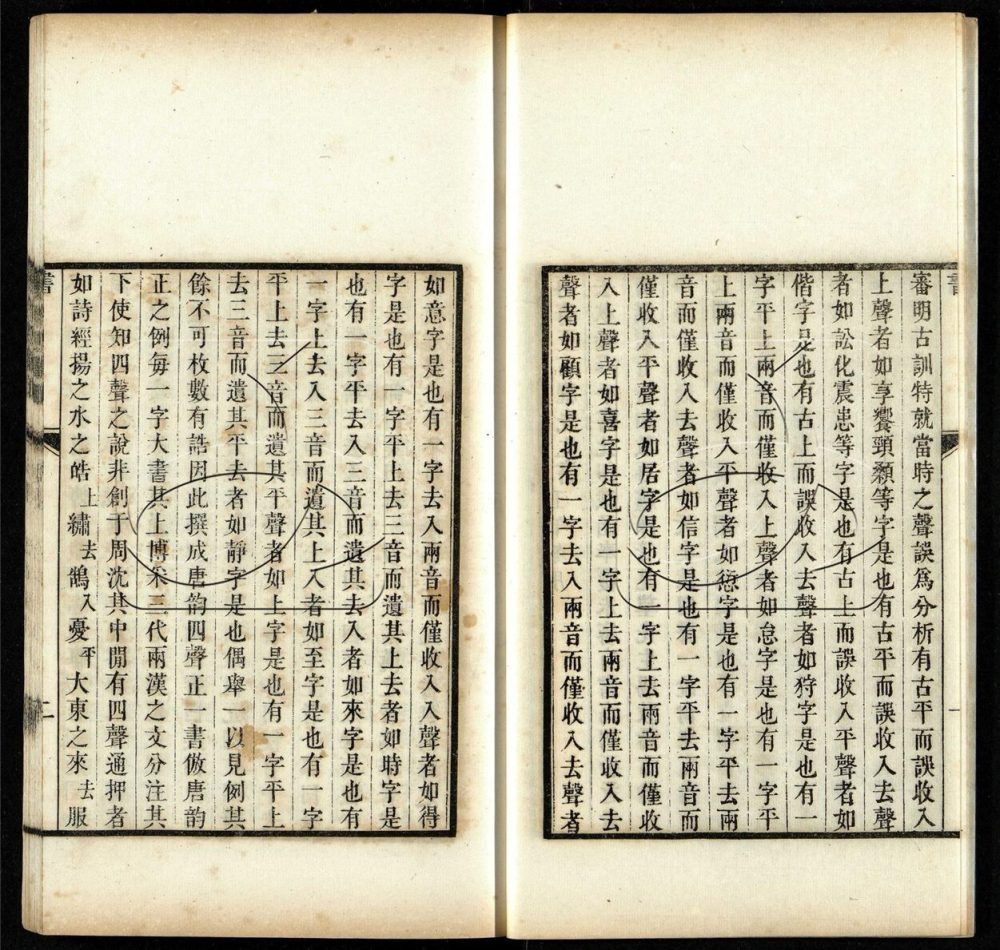 審明古訓特就當時之聲誤爲分析有古平而誤收入
上聲者如享饗頸顙等字是也有古平而誤收入去聲
者如訟化震患等字是也有古上而誤收入平聲者如
偕字是也有古上而誤收入去聲者如狩字是也有一
字平上兩音而僅收入上聲者如怠字是也有一字平
上兩音而僅收入平聲者如愆字是也有一字平去兩
音而僅收入去聲者如信字是也有一字平去兩音而
僅收入平聲者如居字是也有一字上去兩音而僅收
入上聲者如喜字是也有一字上去兩音而僅收入去
聲者如顧字是也有一字去入兩音而僅收入去聲者
如意字是也有一字去入兩音而僅收入入聲者如得
字是也有一字平上去三音而遺其上去者如時字是
也有一字平去入三音而遺其去入者如來字是也有
一字上去入三音而遺其上入者如至字是也有一字
平上去三音而遺其平聲者如上字是也有一字平上
去三音而遺其平去者如靜字是也偶舉一以見例其
餘不可枚數有誥因此撰成唐韵四聲正一書倣唐韵
正之例每一字大書其上博采三代兩漢之文分注其
下使知四聲之說非創于周沈其中閒有四聲通押者
如詩經揚之水之皓上繡去鵠入憂平大東之來去服